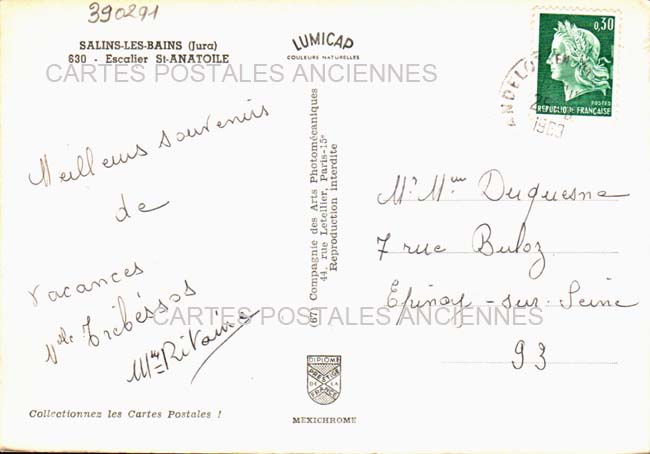 390291
SALINS-LES-BAINS (Jura)
630 - Escalier St-ANATOILE
LUMICAP
COULEURS NATURELLES
0,30
POSTES
REPUBLIQUE FRANÇAISE
CARTES POSTALES ANCIENNES
Meilleurs souvenirs
de
vacances
Mlle Trebéssos
Mme Ritaine
(67) Compagnie des Arts Photomécaniques
44, rue Letellier, Paris-15e
Reproduction interdite
Mr Mme Duquesne
7 rue Buloz
Epinay-sur-Seine
93
CARTES POSTALES ANCIENNES
DIPLOME
PRESTIGE
DE LA
FRANCE
Collectionnez les Cartes Postales !
MEXICHROME